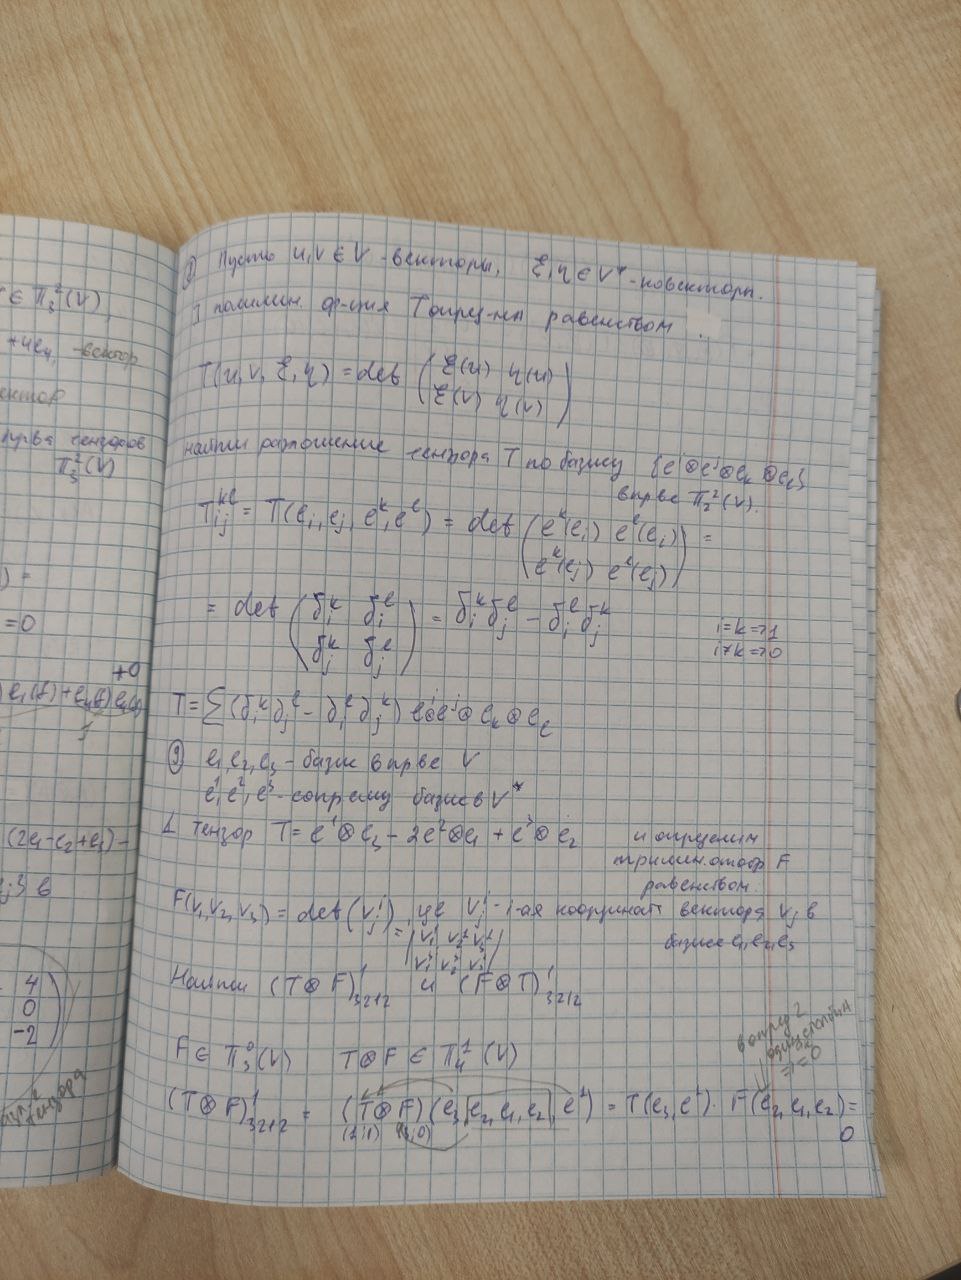 ∈ π₃²(V)
+4e₄, -вектор
тензоров
π₃²(V)
) =
=0
+0
e₁(f)+e₄(f)e₁(e₃)
1
(2e₁-e₂+e₃) -
4
0
-2
тензора
① Пусть u,v ∈ V - векторы, ξ,η ∈ V* - ковекторы.
полилин. ф-ция T опред-на равенством
T(u,v,ξ,η) = det (ξ(u) η(u)
ξ(v) η(v))
Найти разложение тензора T по базису {eⁱ⊗eʲ⊗eₖ⊗eₗ}
в пр-ве π₂²(V).
Tᵢⱼᵏˡ = T(eᵢ, eⱼ, eᵏ, eˡ) = det (eᵏ(eᵢ) eˡ(eᵢ)
eᵏ(eⱼ) eˡ(eⱼ)) =
= det (δᵢᵏ δᵢˡ
δⱼᵏ δⱼˡ) = δᵢᵏδⱼˡ - δᵢˡδⱼᵏ
i=k=>1
i≠k=>0
T = Σ(δᵢᵏδⱼˡ - δᵢˡδⱼᵏ) eⁱ⊗eʲ⊗eₖ⊗eₗ
② e₁,e₂,e₃ - базис в пр-ве V
e¹,e²,e³ - сопряж базис в V*
тензор T = e¹⊗e₃ - 2e²⊗e₁ + e³⊗e₂ и определим
трилин. отобр F
равенством.
F(v₁,v₂,v₃) = det(vⱼⁱ), где vⱼⁱ - i-ая координата вектора vⱼ в
базисе e₁,e₂,e₃
Найти (T⊗F)¹₃₂₁₂ и (F⊗T)¹₃₂₁₂
F ∈ π₃⁰(V) T⊗F ∈ π₄¹(V)
в опред 2
один столбца
=> =0
(T⊗F)¹₃₂₁₂ = (T⊗F)(e₃,e₂,e₁,e₂,e¹) = T(e₃,e¹)·F(e₂,e₁,e₂) =
(1,1) (3,0)
0